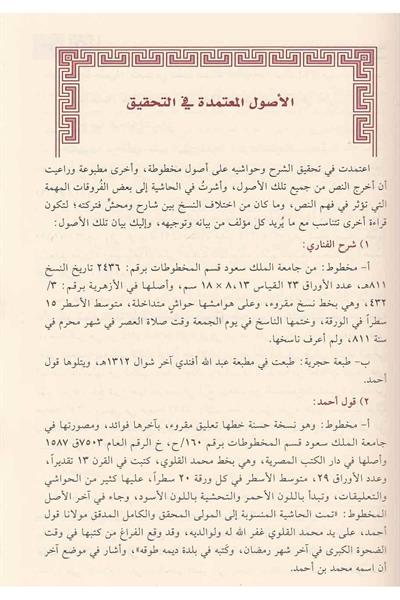 الأصول المعتمدة في التحقيق
اعتمدت في تحقيق الشرح وحواشيه على أصول مخطوطة، وأخرى مطبوعة وراعيت
أن أخرج النص من جميع تلك الأصول، وأشرتُ في الحاشية إلى بعض الفُروقات المهمة
التي تؤثر في فهم النص، وما كان من اختلاف النسخ بين شارح ومحشٍّ فتركته؛ لتكون
قراءة أخرى تتناسب مع ما يُريد كل مؤلف من بيانه وتوجيهه، وإليك بيان تلك الأصول:
١) شرح الفناري:
أ- مخطوط: من جامعة الملك سعود قسم المخطوطات برقم: ٢٤٣٦ تاريخ النسخ
٨١١هـ، عدد الأوراق ٢٣ القياس ٨،١٣ × ١٨ سم، وأصلها في الأزهرية برقم: ٣/
٤٣٢، وهي بخط نسخ مقروء، وعلى هوامشها حواشٍ متداخلة، متوسط الأسطر ١٥
سطراً في الورقة، وختمها الناسخ في يوم الجمعة وقت صلاة العصر في شهر محرم في
سنة ٨١١، ولم أعرف ناسخها.
ب- طبعة حجرية: طبعت في مطبعة عبد الله أفندي آخر شوال ١٣١٢هـ، ويتلوها قول
أحمد.
٢) قول أحمد:
أ- مخطوط: وهو نسخة حسنة خطها تعليق مقروء، بآخرها فوائد، ومصورتها في
جامعة الملك سعود قسم المخطوطات برقم ١٦٠/ح، خ الرقم العام ٧٥٠٣ق ١٥٨٧
وأصلها في دار الكتب المصرية، وهي بخط محمد القلوي، كتبت في القرن ١٣ تقديراً،
وعدد الأوراق ٢٩، متوسط الأسطر في كل ورقة ٢٠ سطراً، عليها كثير من الحواشي
والتعليقات، وتبدأ باللون الأحمر والتحشية باللون الأسود، وجاء في آخر الأصل
المخطوط: «تمت الحاشية المنسوبة إلى المولى المحقق والكامل المدقق مولانا قول
أحمد، على يد محمد القلوي غفر الله له ولوالديه، وقد وقع الفراغ من كتبها في وقت
الضحوة الكبرى في آخر شهر رمضان، وكتبه في بلدة ديمه طوقه»، وأشار في موضع آخر
أن اسمه محمد بن أحمد.